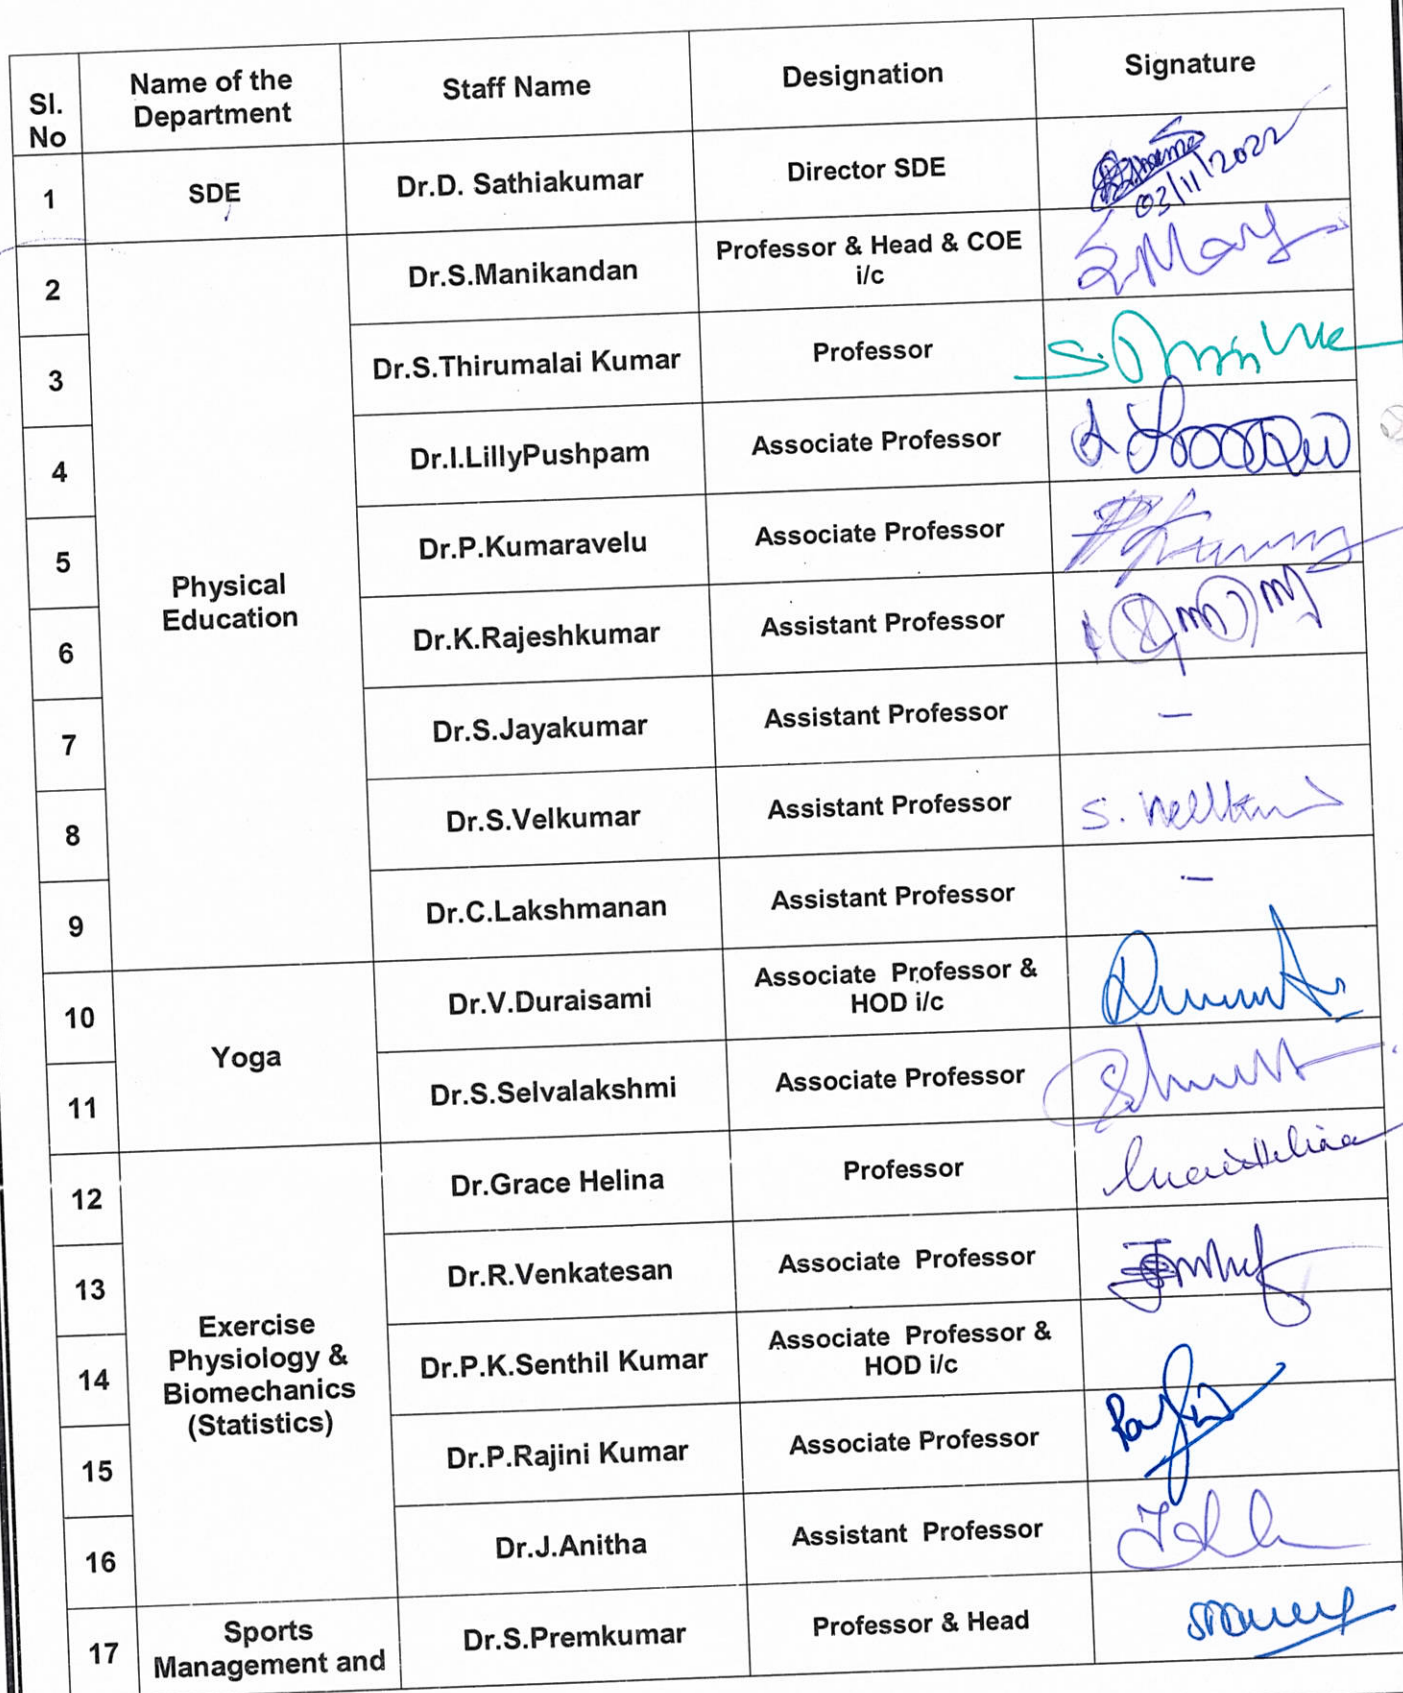 Sl. No
Name of the Department
Staff Name
Designation
Signature
1
SDE
Dr.D. Sathiakumar
Director SDE
03/11/2022
2
Physical Education
Dr.S.Manikandan
Professor & Head & COE i/c
3
Dr.S.Thirumalai Kumar
Professor
4
Dr.I.LillyPushpam
Associate Professor
5
Dr.P.Kumaravelu
Associate Professor
6
Dr.K.Rajeshkumar
Assistant Professor
7
Dr.S.Jayakumar
Assistant Professor
–
8
Dr.S.Velkumar
Assistant Professor
9
Dr.C.Lakshmanan
Assistant Professor
–
10
Yoga
Dr.V.Duraisami
Associate Professor & HOD i/c
11
Dr.S.Selvalakshmi
Associate Professor
12
Exercise Physiology & Biomechanics (Statistics)
Dr.Grace Helina
Professor
13
Dr.R.Venkatesan
Associate Professor
14
Dr.P.K.Senthil Kumar
Associate Professor & HOD i/c
15
Dr.P.Rajini Kumar
Associate Professor
16
Dr.J.Anitha
Assistant Professor
17
Sports Management and
Dr.S.Premkumar
Professor & Head